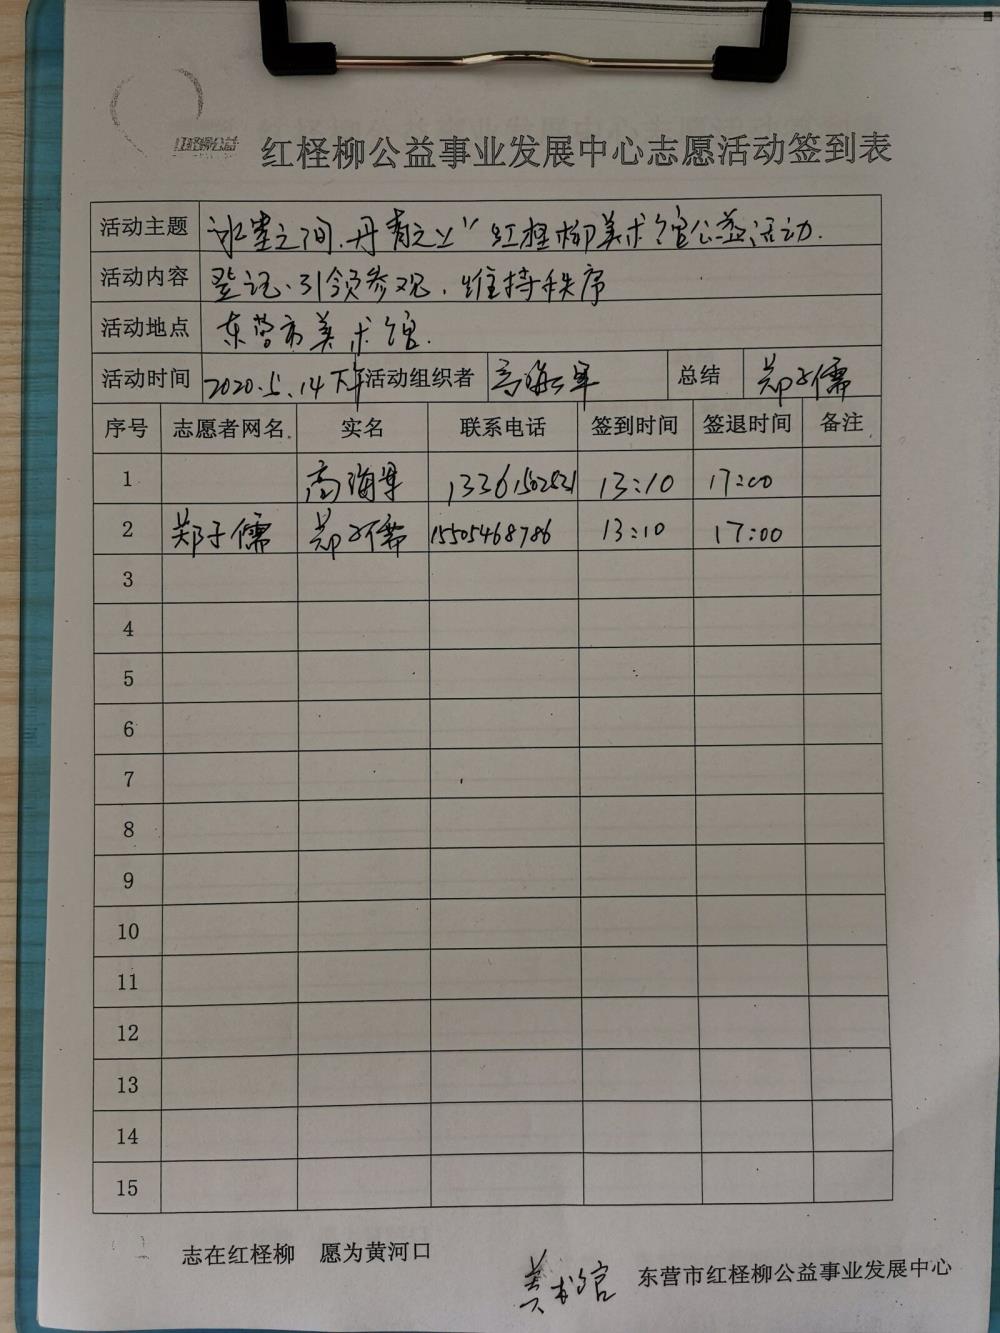 红柽柳公益
红柽柳公益事业发展中心志愿活动签到表
活动主题 之间.丹青之上"红柽柳美术馆公益活动.
活动内容 登记、引领参观、维持秩序
活动地点 东营市美术馆.
活动时间 2020.5.14下午 活动组织者 高海军 总结 郑子儒
序号 志愿者网名 实名 联系电话 签到时间 签退时间 备注
1 高海军 13:10 17:00
2 郑子儒 郑子儒 15505468786 13:10 17:00
3
4
5
6
7
8
9
10
11
12
13
14
15
志在红柽柳 愿为黄河口
美术馆 东营市红柽柳公益事业发展中心